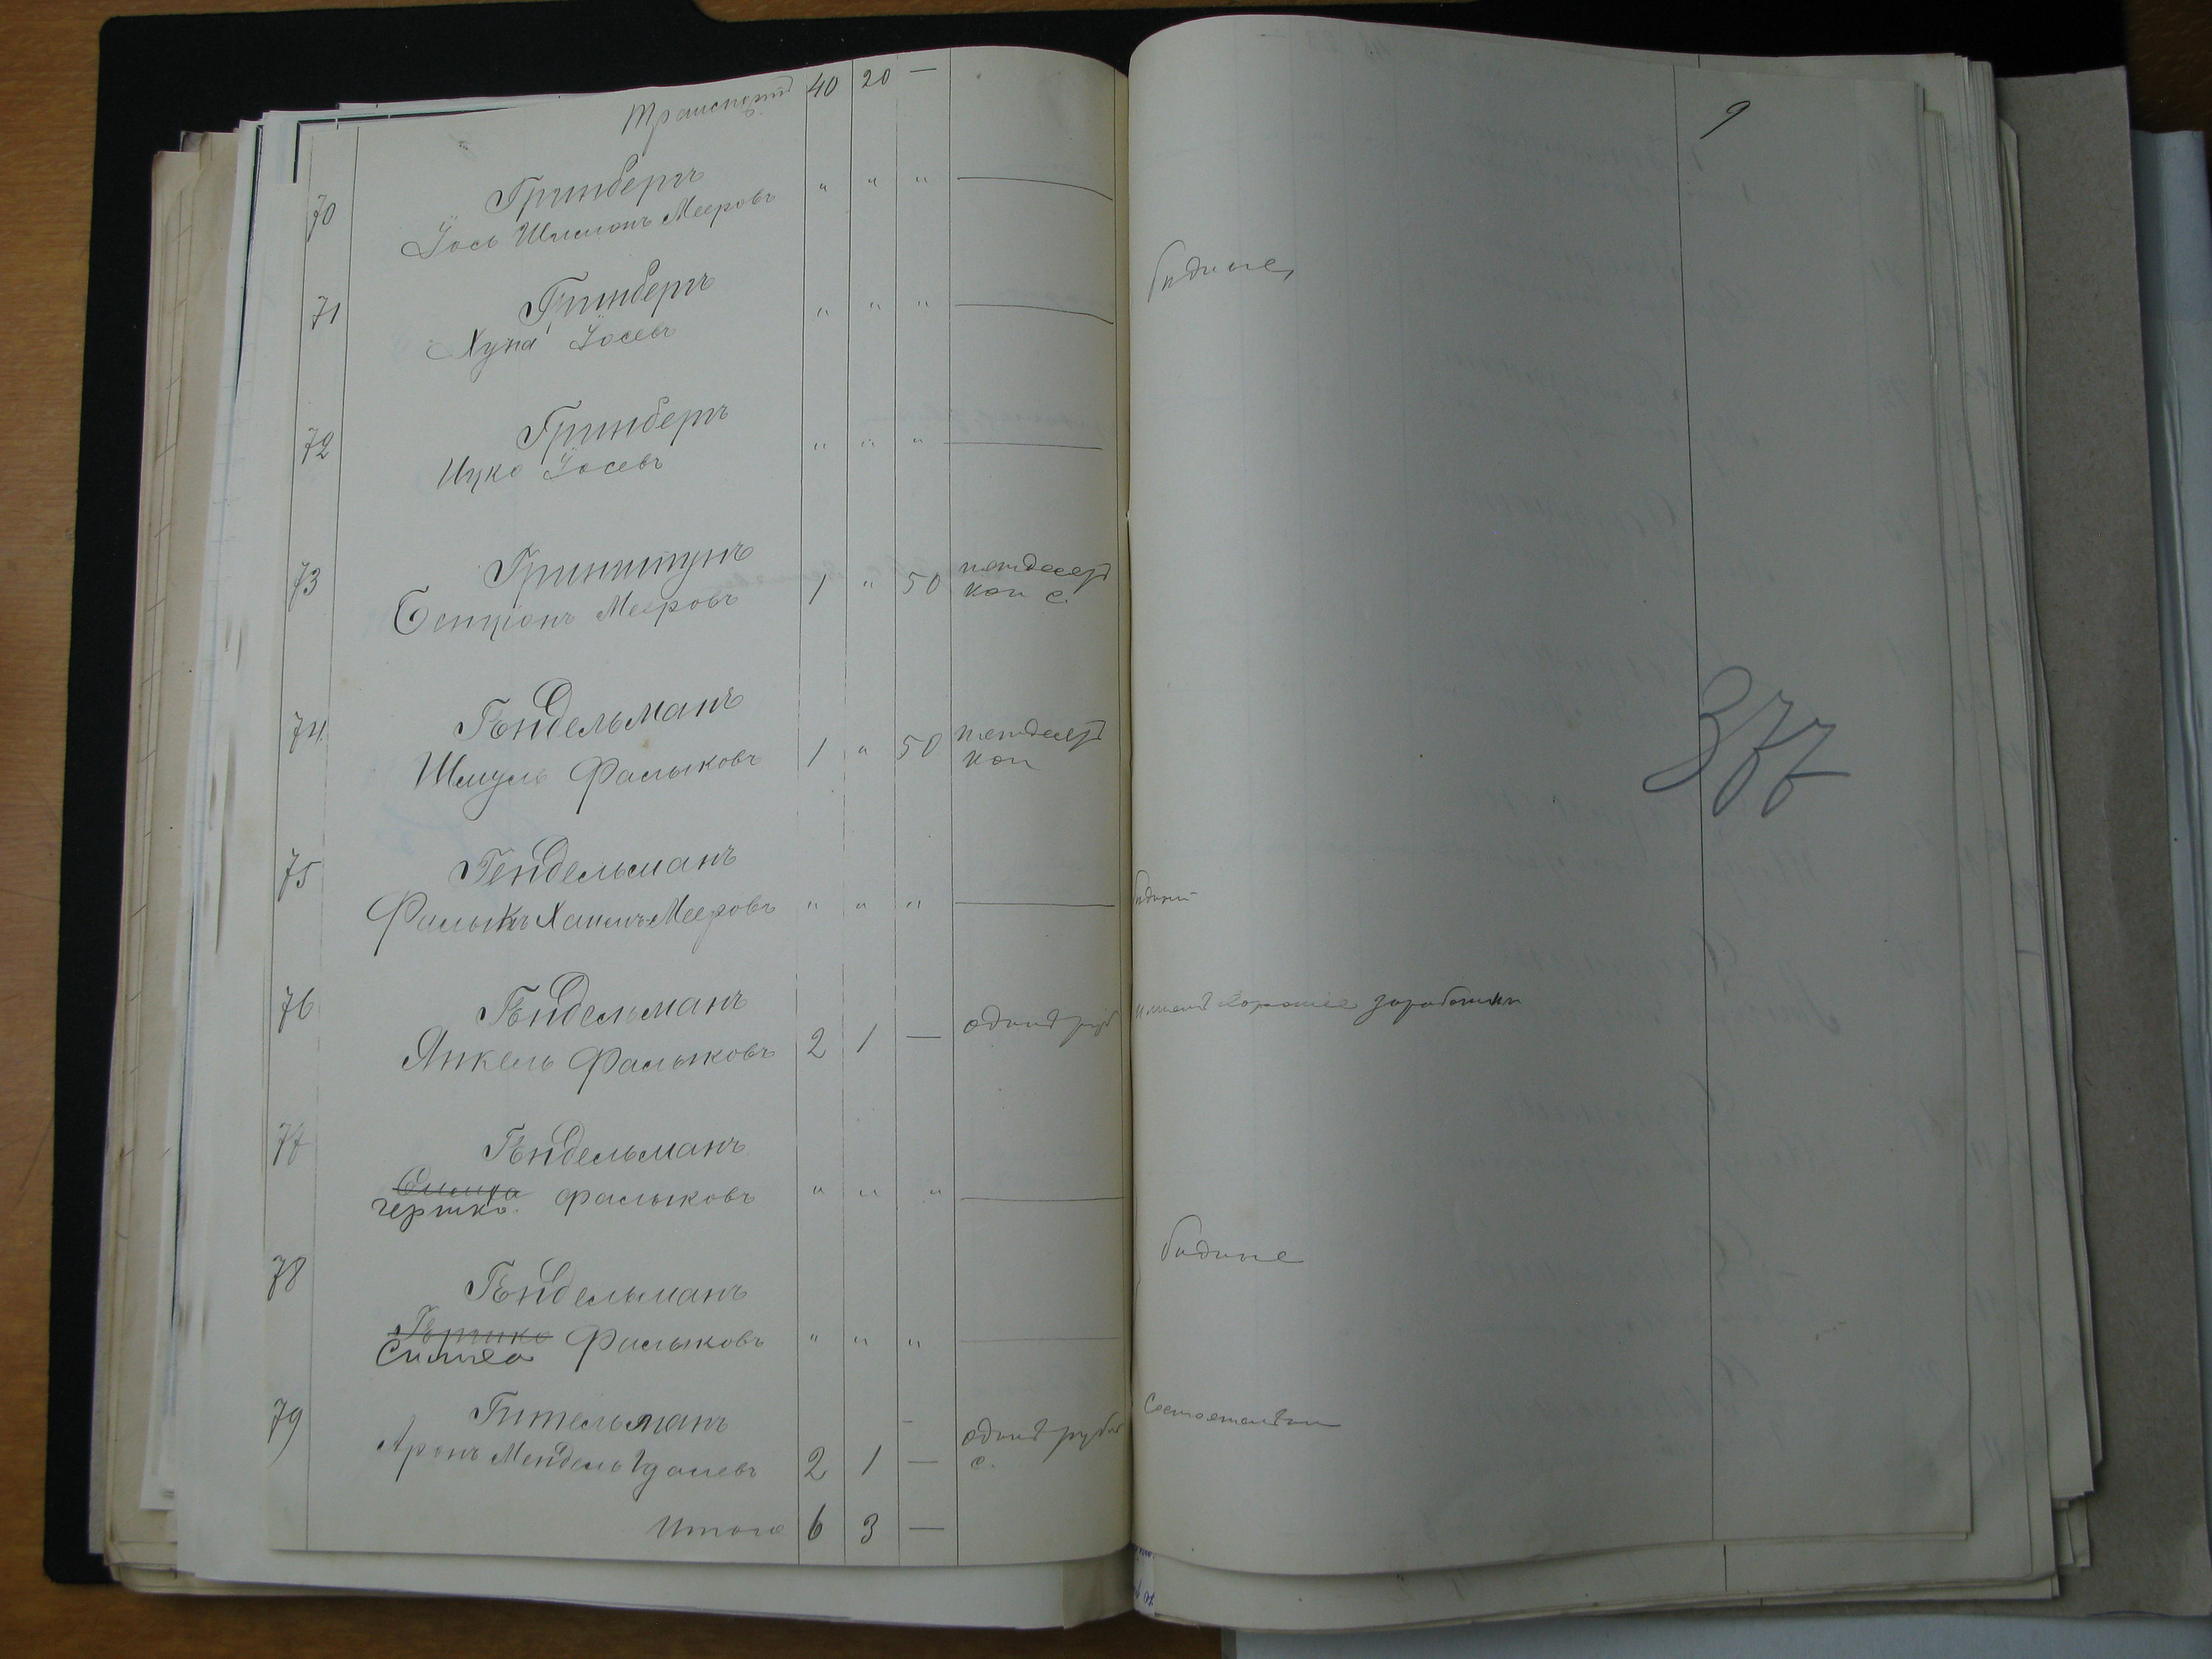 Транспортъ 40 20 —
9
70 Гринбергъ " " " —
Іось Шлиома Мееровъ
71 Гринбергъ " " " —
Хуна Іосевъ
бѣдные
72 Гринбергъ " " " —
Ицко Іосевъ
73 Гринштунъ
Бенціонъ Мееровъ 1 " 50 пятдесят
коп с.
377
74 Гендельманъ
Шмуль Фальковъ 1 " 50 пятдесят
коп
75 Гендельманъ
Фалыкъ Хаимъ-Мееровъ " " " — бѣдный
76 Гендельманъ
Янкель Фалыковъ 2 1 — одинъ руб имеетъ хорошие заработки
77 Гендельманъ
Симха
Гершко Фалыковъ " " " —
бѣдные
78 Гендельманъ
Гершко
Симха Фалыковъ " " " —
79 Гительманъ
Аронъ Мендель Гдалевъ 2 1 — одинъ рубль
с.
Итого 6 3 —